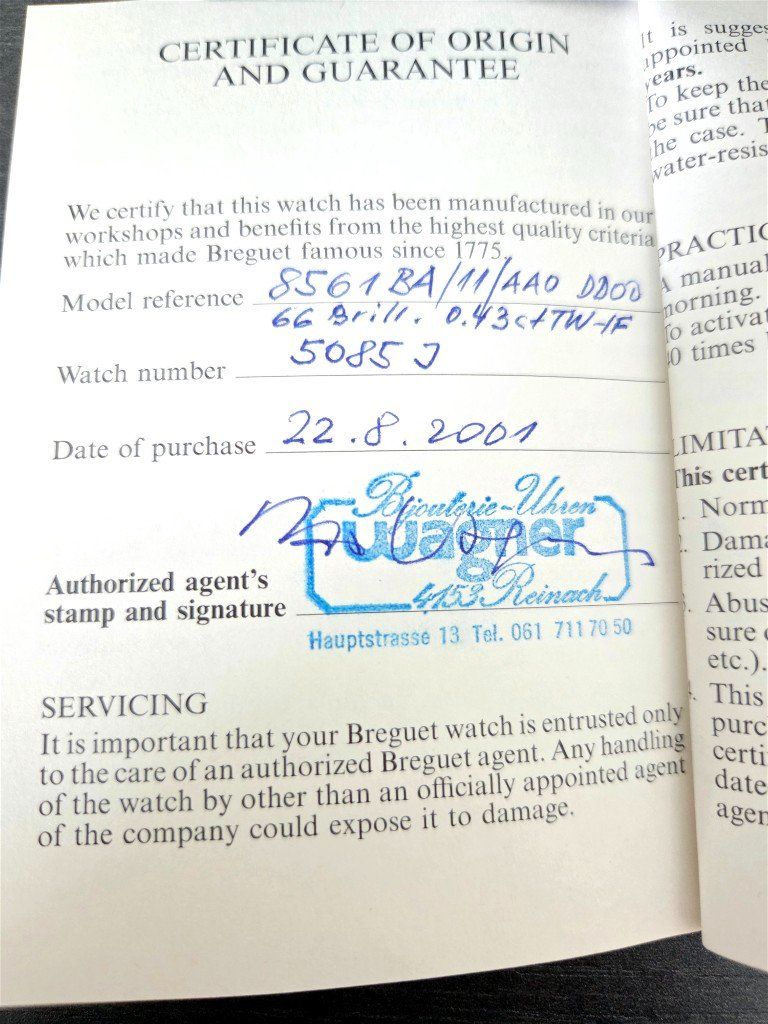 CERTIFICATE OF ORIGIN
AND GUARANTEE
We certify that this watch has been manufactured in our
workshops and benefits from the highest quality criteria
which made Breguet famous since 1775.
Model reference 8561 BA/11/AA0 DD00
66 Brill. 0.43ct TW-IF
Watch number 5085 J
Date of purchase 22.8.2001
Bijouterie-Uhren
wagner
4153 Reinach
Authorized agent's
stamp and signature
Hauptstrasse 13 Tel. 061 711 70 50
SERVICING
It is important that your Breguet watch is entrusted only
to the care of an authorized Breguet agent. Any handling
of the watch by other than an officially appointed agent
of the company could expose it to damage.
It is
appointed
years.
To keep the
be sure that
the case.
A manual
morning.
10 times
This
Abus
sure
etc.).
This